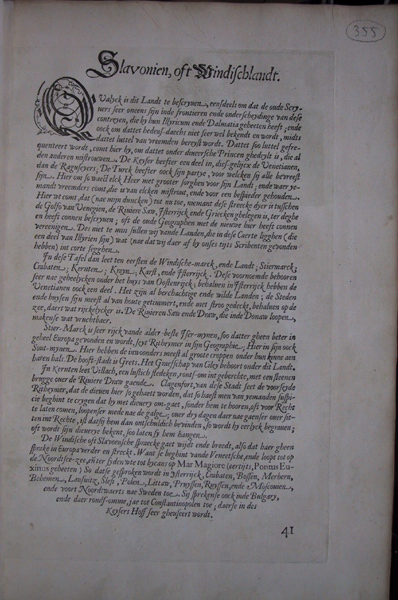 355
Slavonien, oft Windischlandt.
Qualyck is dit Landt te bescryven, eensdeels om dat de oude Scry-
vers seer oneens sijn inde frontieren ende onderscheydinge van dese
contreyen, die sy hun Illyricum ende Dalmatia geheeten heeft; ende
oock om dattet hedens-daechs niet seer wel bekendt en wordt, midts
dattet luttel van vreemden bereyst wordt. Dattet soo luttel gefre-
quenteert wordt, comt hier by, om dattet onder diveersche Princen ghedeylt is, die al
den anderen mistrouwen. De Keyser heefter een deel in, des-gelijcx de Venetianen,
den de Raguseers; De Turck heefter oock sijn partye, voor welcken sy alle bevreest
sijn. Hier om so wacht elck Heer met grooter sorghen voor sijn Landt; ende waer ye-
mandt vreemdes comt, die is van elcken mistrout, ende voor een bespieder gehouden.
Hier wt comt, dat (nae mijn duncken) tot nu toe, niemant dese streecke dyer is tusschen
de Golfo van Venegien, de Riviere Saw, Isterrijck ende Griecken ghelegen is, ter deghe
en heeft connen bescryven; oft de oude Geographen met de nieuwe hier heeft connen
vereenigen. Des niet te min sullen wy vande Landen, die in dese Caerte ligghen (die
een deel van Illyrien sijn) wat (nae dat wy daer af by onses tijts Scribenten gevonden
hebben) int corte segghen.
In dese Tafel dan leet ten eersten de Windische-marck, ende Landt; Stiermarck;
Cinbaten; Kernten; Krayn, Karst, ende Isterrijck. Dese voornoemde behooren
seer nae geheelycken onder het huys van Oostenryck; behalven in Isterrijck hebben de
Venetianen oock een deel. Het zijn al berchachtige ende wilde Landen; de Steden
ende huysen sijn meest al van houte getimmert, ende met stroo gedeckt, behalven op de
zee, daert wat rijckelycker is. De Rivieren Saw ende Draw, die inde Donaw loopen,
makense wat vruchtbaer.
Stier-Marck is seer rijck vande alder-beste Yser-mynen, soo datter gheen beter in
geheel Europa gevonden en wordt, seyt Rithaymer in sijn Geographie. Hier in sijn oock
Sout-mynen. Hier hebben de inwoonders meest al groote croppen onder hun kinne aen
haren hals. De hooft-stadt is Greets. Het Graefschap van Ciley behoort onder dit Landt.
In Kernten leet Villach, een lustich stedeken, rontsom int geberchte, met een steenen
brugge over de Riviere Draw gaende. Clagenfort, van dese Stadt seet de voorseyde
Rithaymer, dat de dieven hier so gehaett worden, dat so haest men van yemanden suspi-
cie beghint te crygen dat hy met dievery om-gaet, sonder hem te hooren, oft voor Recht
te laten comen, loopense mede nae de galge; over dry dagen daer nae gaense over sit-
ten int Rechte, ist datse hem dan ontschuldich bevinden, so wordt hy eerlyck begraven;
oft wordt sijn dieverye bekent, soo laten sy hem hangen.
De Windische oft Slavonische spraecke gaet wijdt ende breedt, alsoo dat haer gheen
sprake in Europa verder en streckt. Want se beghint vande Venetsche, ende loopt tot op
de Noordsche-zee, en ter sijden wtt tot by aen op Mar Magiore (eertijts, Pontus Eu-
xinus geheeten) So datse gesproken wordt in Isterrijck, Cinbaten, Bossen, Merhern,
Bohemen, Lausnitz, Slesi, Polen, Littaw, Pruyssen, Ruyssen, ende Moscouwen,
ende voort Noordtwaerts nae Sweden toe. Sy sprekense oock inde Bulgary,
ende daer rondt-omme, jae tot Constantinopolen toe; daerse in des
Keysers Hoff seer ghenseert wordt.
41